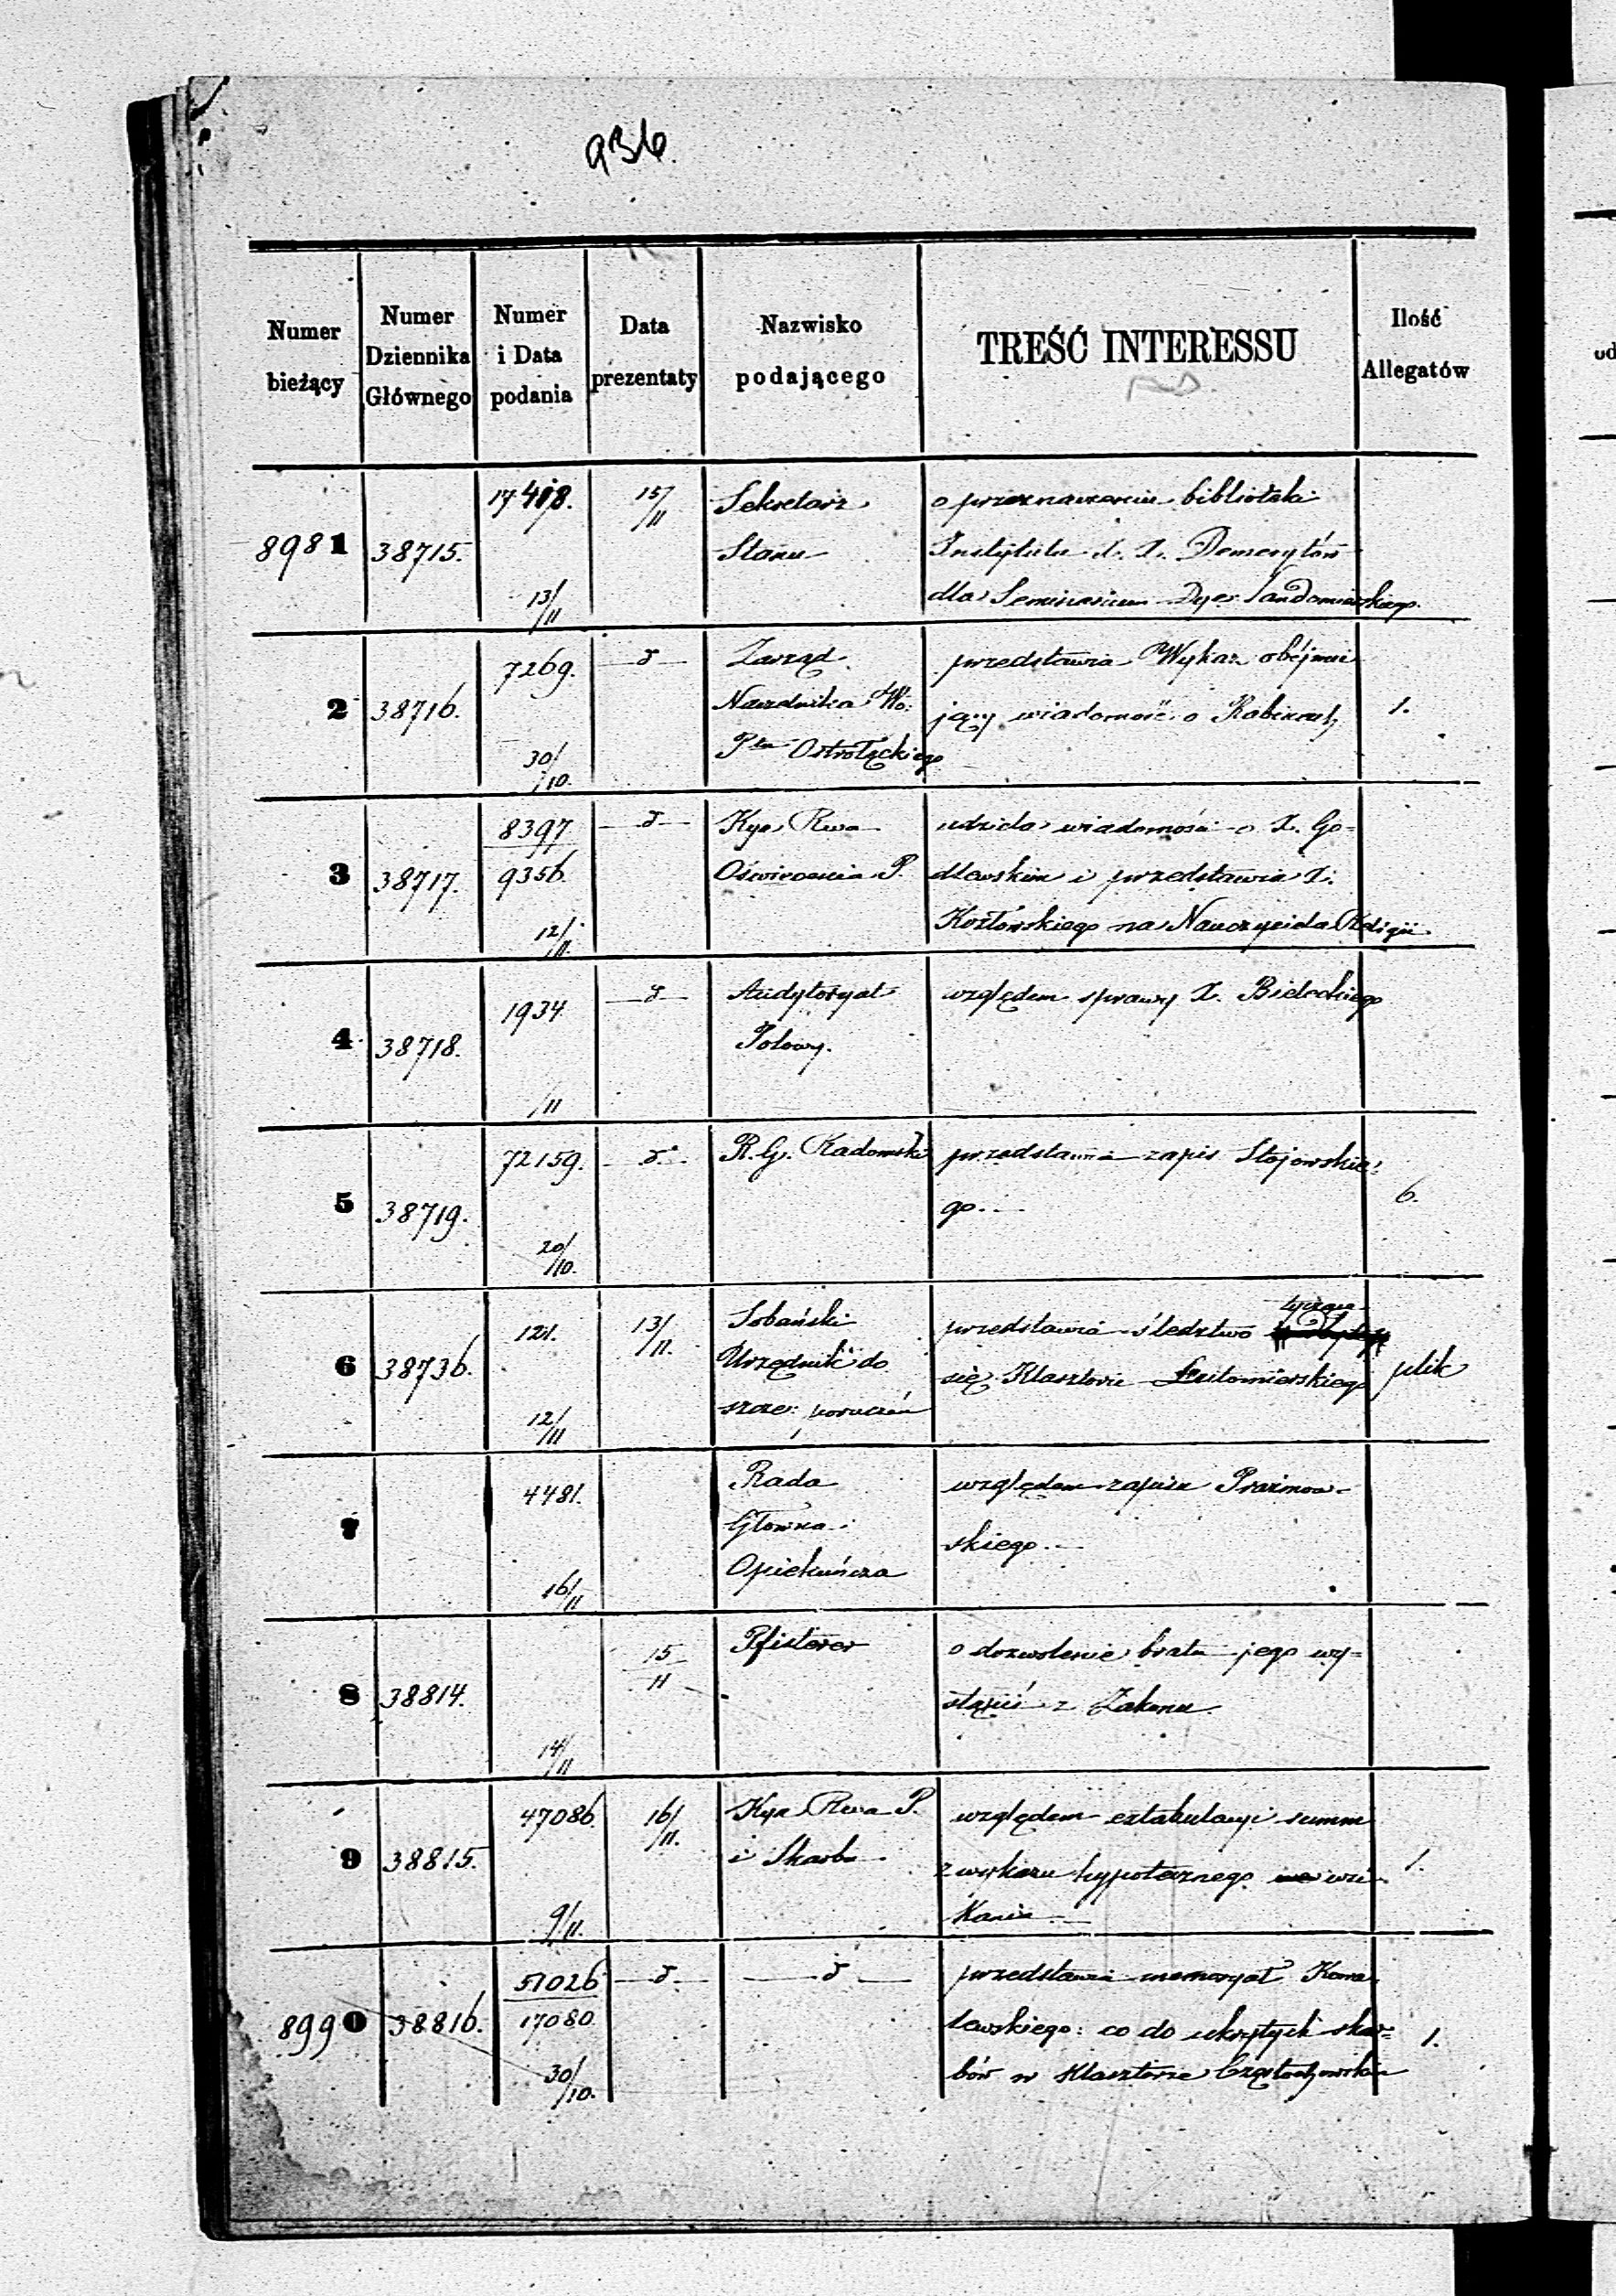 936.
Numer bieżący
Numer Dziennika Głównego
Numer i Data podania
Data prezentaty
Nazwisko podającego
TREŚĆ INTERESSU
Ilość Allegatów
8981 38715. 17418. 13/11 15/11
Sekretarz
Stanu
o przeznaczenie biblioteki
Instytutu X. X. Demerytów
dla Seminarium Dyec. Sandomierskiego.
2 38716. 7269. 30/10. d
Zarząd
Naczelnika Wo:
Ptu Ostrołęckiego
przedstawia Wykaz obejmu
jący wiadomość o Rabinach
1.
3 38717. 8397 9356. 12/11. d
Kya Rwa
Oświecenia P.
udziela wiadomości o X. Go=
dlewskim i przedstawia X.
Kozłowskiego na Nauczyciela Religii
4 38718. 1934 /11 d
Audytoryat
Polowy.
względem sprawy X. Bieleckiego
5 38719. 72159. 20/10. d
R. G. Radomski
przedstawia zapis Stojowskie=
go.
6.
6 38736. 121. 12/11 13/11.
Sobański
Urzędnik do
szcze: poruczeń
przedstawia śledztwo tyczące
się Klasztoru Lutomierskiego
plik
7 4481. 16/11
Rada
Główna
Opiekuńcza
względem zapisu Prażmow-
skiego.
8 38814. 14/11 15/11
Pfisterer
o dozwolenie bratu jego wy=
stąpić z Zakonu.
9 38815. 47086. 9/11. 16/11.
Kya Rwa P.
i Skarbu
względem extabulacyi summ
z wykazu hypotecznego
1.
8990 38816. 51026 17080. 30/10. d d
przedstawia memoryał Kowa
lewskiego: co do ukrytych skar=
bów w Klasztorze Częstochowskim
1.